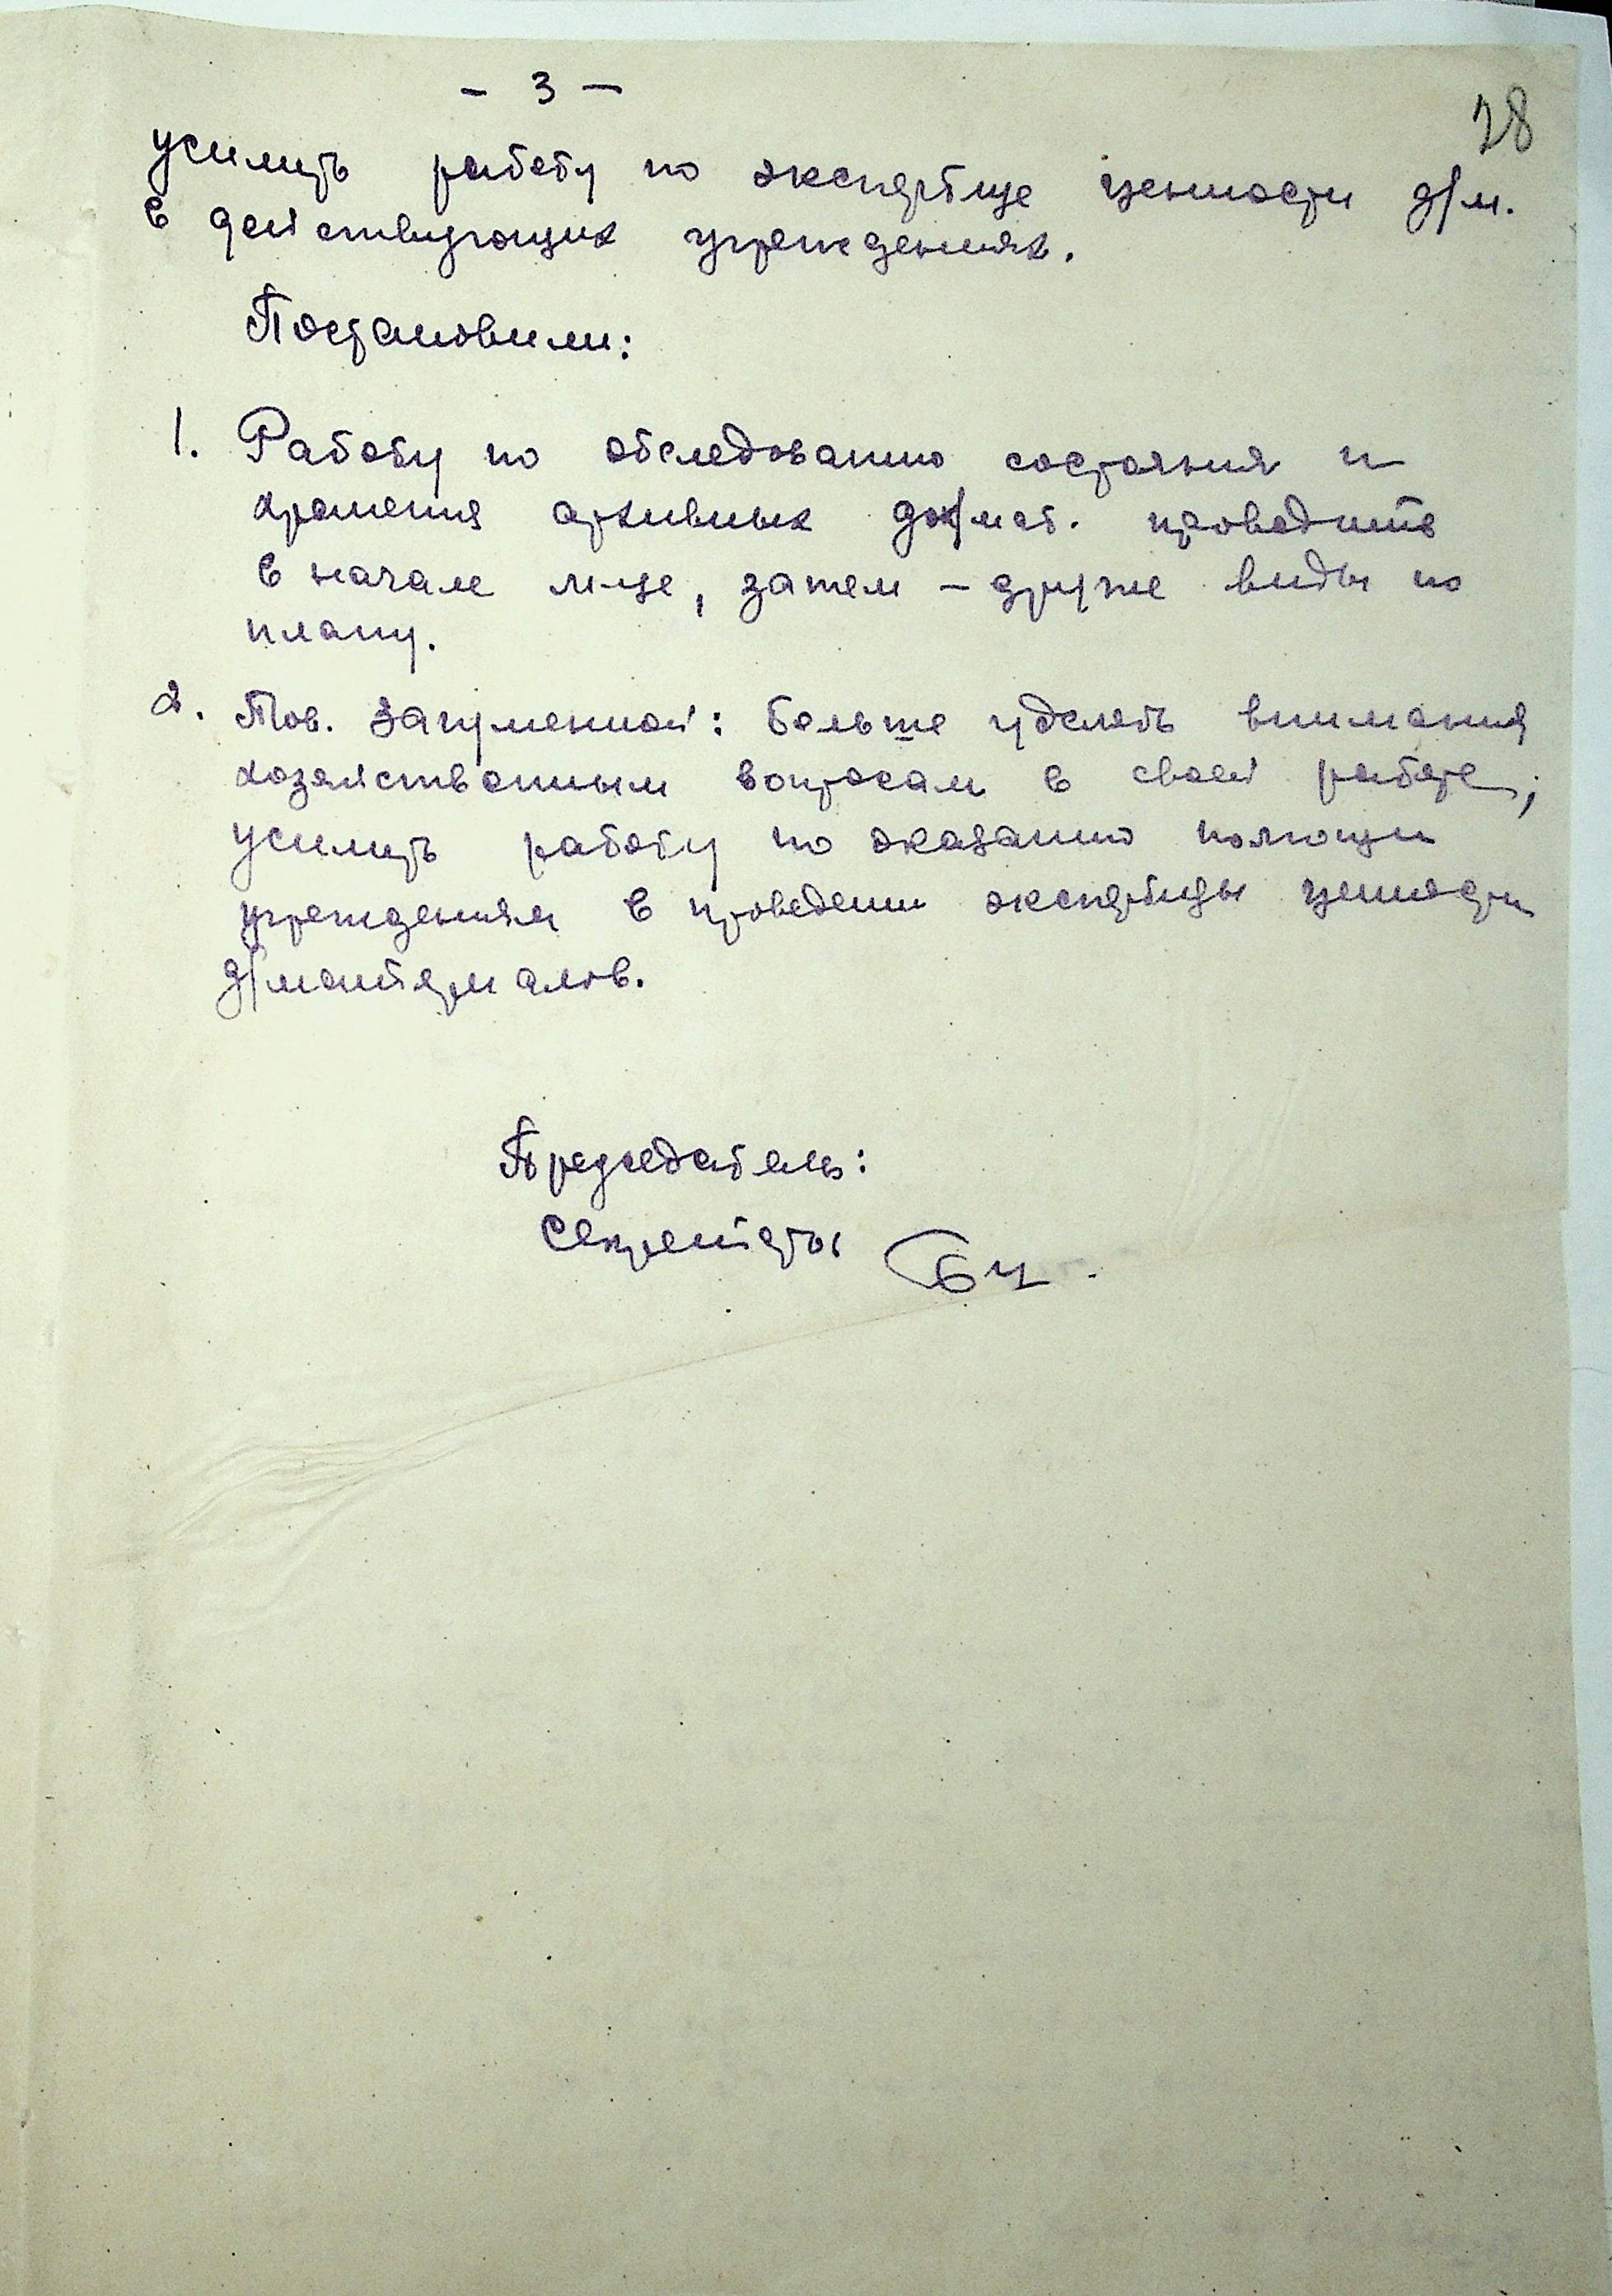 - 3 -
28
усилить работу по экспертизе ценности д/м.
в действующих учреждениях.
Постановили:
1. Работу по обследованию состояния и
хранения архивных док/мат. проводить
в начале м-це, затем - другие виды по
плану.
2. Тов. Загуменной: больше уделять внимания
хозяйственным вопросам в своей работе,
усилить работу по оказанию помощи
учреждениям в проведении экспертизы ценности
д/материалов.
Председатель:
Секретарь